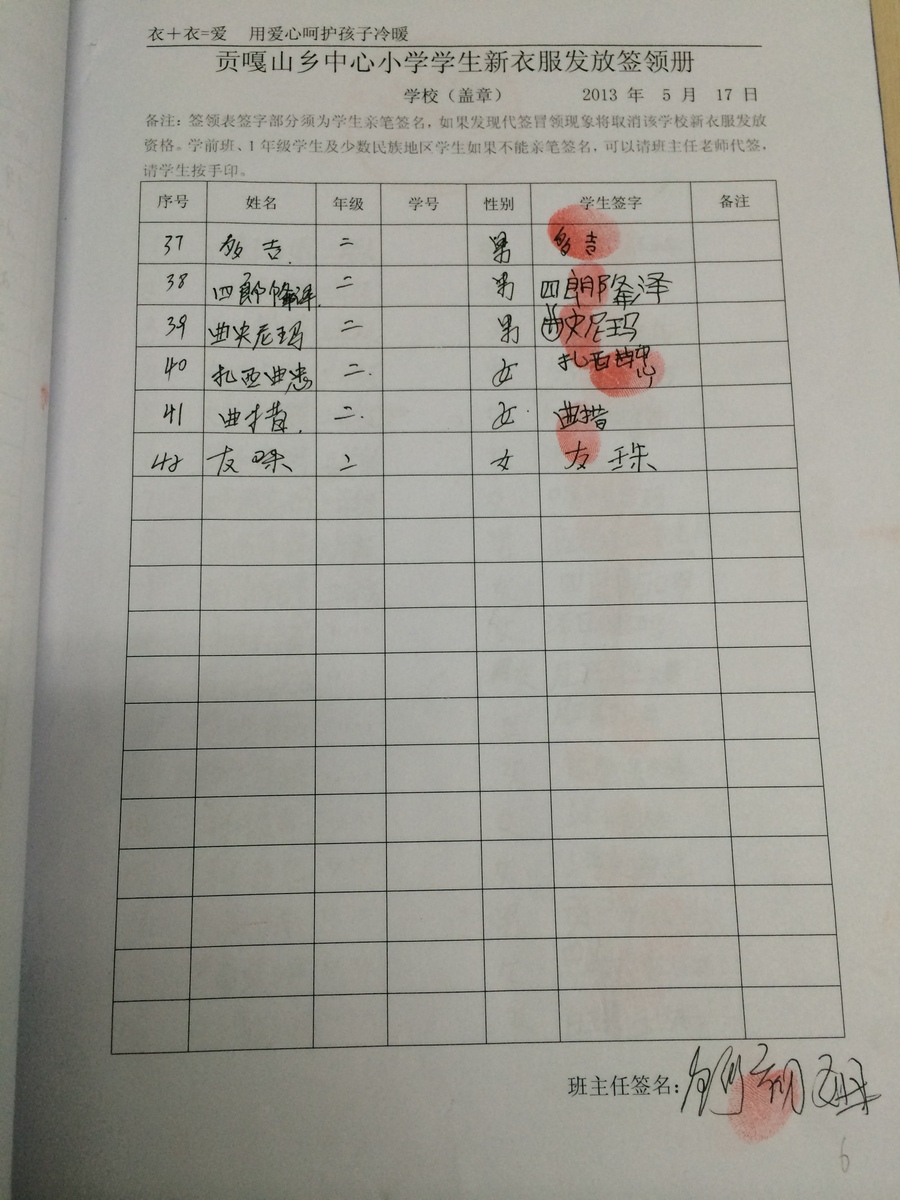 衣+衣=爱 用爱心呵护孩子冷暖
贡嘎山乡中心小学学生新衣服发放签领册
学校（盖章） 2013 年 5 月 17 日
备注：签领表签字部分须为学生亲笔签名，如果发现代签冒领现象将取消该学校新衣服发放
资格。学前班、1 年级学生及少数民族地区学生如果不能亲笔签名，可以请班主任老师代签，
请学生按手印。
序号 姓名 年级 学号 性别 学生签字 备注
37 多吉 二 男 多吉
38 四郎降泽 二 男 四郎降泽
39 曲央尼玛 二 男 曲央尼玛
40 扎西曲忠 二 女 扎西曲忠
41 曲措 二 女 曲措
42 友珠 二 女 友珠
班主任签名：
6